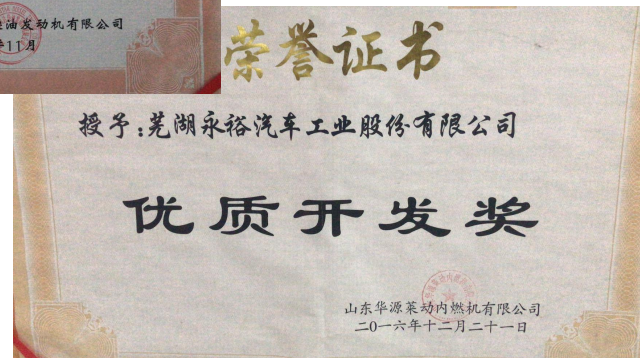 油发动机有限公司
11月
荣誉证书
授予:芜湖永裕汽车工业股份有限公司
优质开发奖
山东华源莱动内燃机有限公司
二〇一六年十二月二十一日